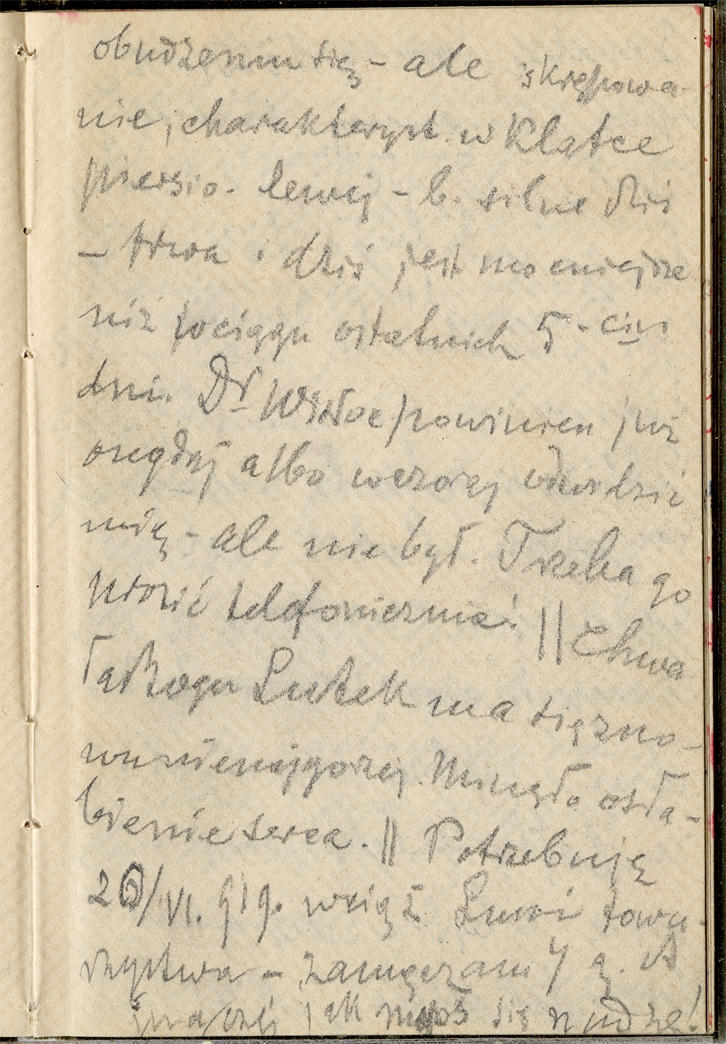 obudzeniu się – ale skrępowa-
nie, charakteryst. w Klatce
piersio. lewej – b. silne dziś
– trwa i dziś jest mocniejsze
niż pociągu ostatnich 5-ciu
dni. Dr powinien już
onegdaj albo wczoraj odwiedzić
mię – ale nie był. Trzeba go
prosić telefonicznie! || Chwa
ła Bogu Lutek ma się zno-
wu nienajgorzej. Minęło osła-
bienie serca. || Potrzebuję
26/VI. 919. wciąż towa-
rzystwa – zamęczam
inaczej jak mops się nudzę!